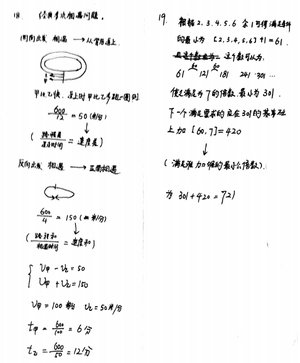 18. 经典多次相遇问题.
同向出发 相遇 → 从背后追上.
甲比乙快, 追上时甲比乙多跑一圈则
600/12 = 50 (米/分)
(路程差/追及时间 = 速度差)
反向出发 相遇 → 正面相遇
600/4 = 150 (米/分)
(路程和/相遇时间 = 速度和)
V甲 - V乙 = 50
V甲 + V乙 = 150
V甲 = 100 米/分 V乙 = 50米/分
t甲 = 600/100 = 6分
t乙 = 600/50 = 12分
19. 根据 2.3.4.5.6 余1可得满足条件
的最小为 [2.3.4.5.6]+1 = 61.
这个数可以为.
61 121 181 241 301 ...
使之满足为7的倍数. 最小为 301.
下一个满足要求的应在301的基础
上加 [60,7] = 420
为 301+420 = 721